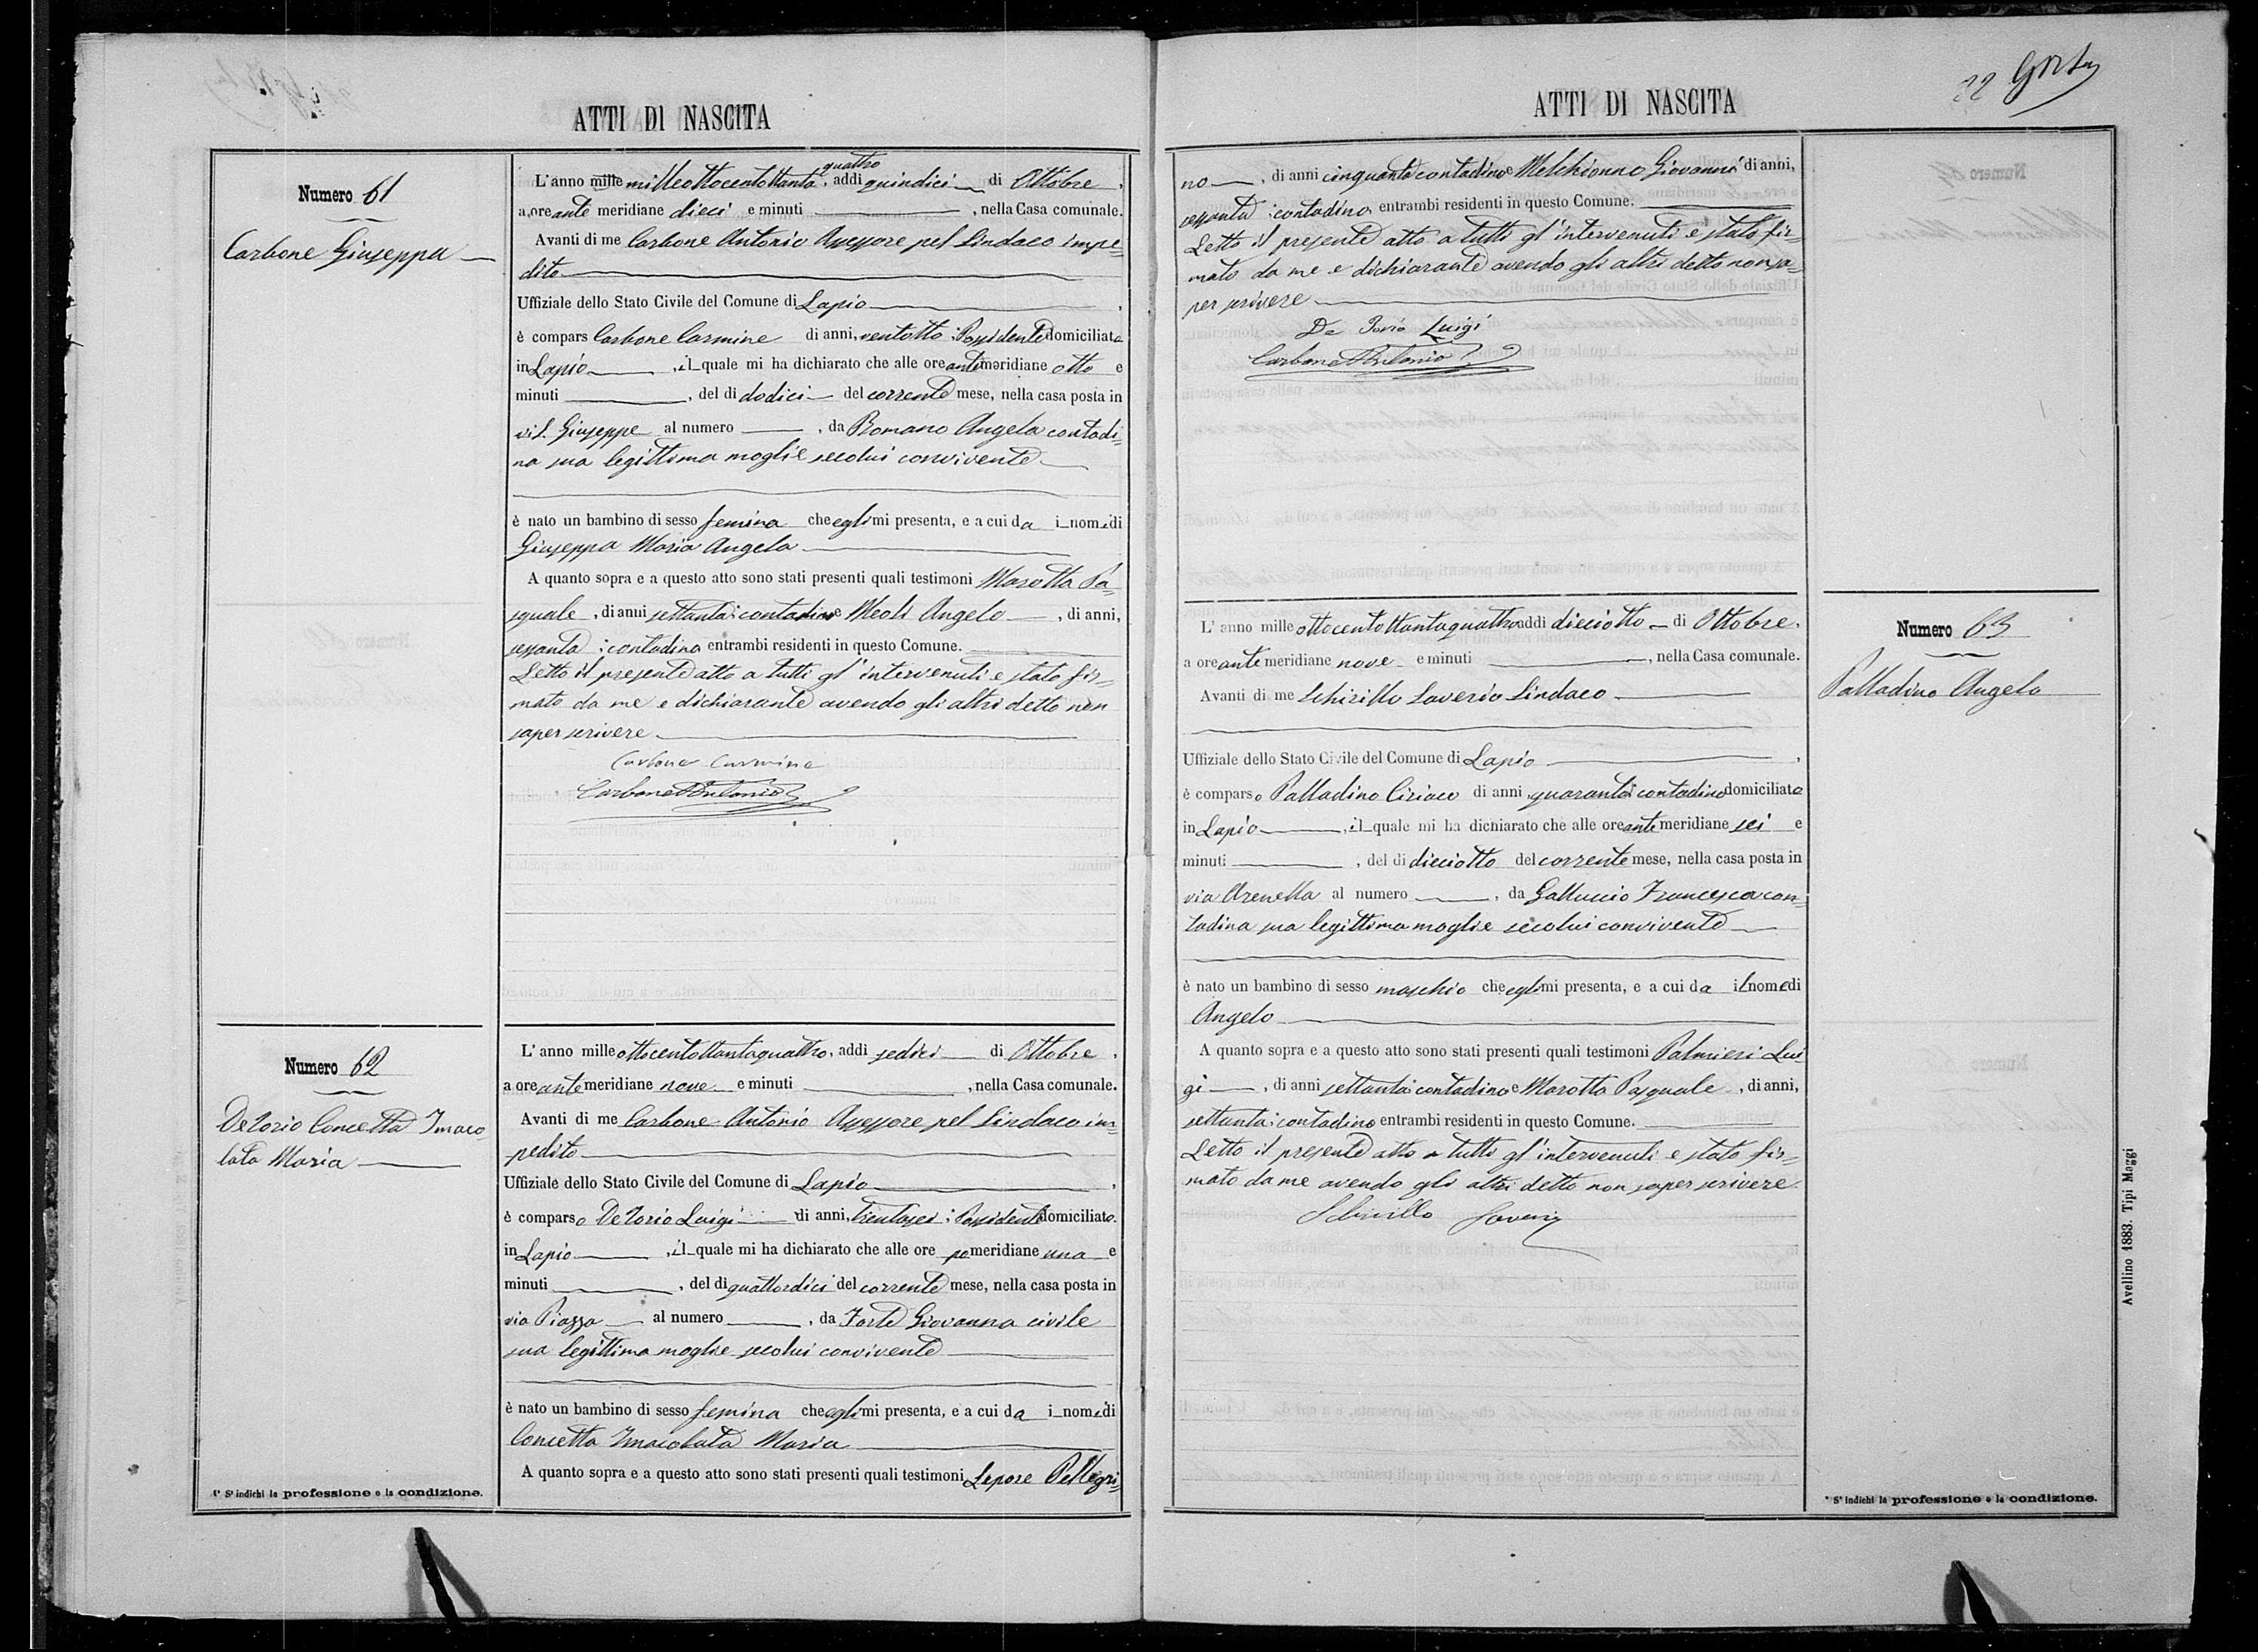 ATTI DI NASCITA
Numero 61
Carbone Giuseppa
quattro
L'anno mille milleottocentottanta, addi quindici di Ottobre,
a ore ante meridiane dieci e minuti , nella Casa comunale.
Avanti di me Carbone Antonio Assessore pel Sindaco impe=
dito
Uffiziale dello Stato Civile del Comune di Lapio,
è compars Carbone Carmine di anni, ventotto; Possidente domiciliato
in Lapio, il quale mi ha dichiarato che alle ore antimeridiane otto e
minuti , del di dodici del corrente mese, nella casa posta in
vi S. Giuseppe al numero , da Romano Angela contadi=
na sua legittima moglie secolui convivente
è nato un bambino di sesso femina che egli mi presenta, e a cui da i nomi di
Giuseppa Maria Angela
A quanto sopra e a questo atto sono stati presenti quali testimoni Marotta Pa=
squale, di anni settanta; contadino e Meoli Angelo, di anni,
sessanta; contadino entrambi residenti in questo Comune.
Letto il presente atto a tutti gl'intervenuti e stato fir=
mato da me e dichiarante avendo gli altri detto non
saper scrivere
Carbone Carmine
Carbone Antonio
Numero 62
De Iorio Concetta Imaco
lata Maria
L'anno mille ottocentottantaquattro, addi sedici di Ottobre,
a ore ante meridiane nove e minuti , nella Casa comunale.
Avanti di me Carbone Antonio Assessore pel Sindaco im=
pedito
Uffiziale dello Stato Civile del Comune di Lapio,
è comparso De Iorio Luigi di anni, trentasei; Possidente domiciliato
in Lapio, il quale mi ha dichiarato che alle ore pomeridiane una e
minuti , del di quattordici del corrente mese, nella casa posta in
via Piazza al numero , da Forte Giovanna civile
sua legittima moglie secolui convivente
è nato un bambino di sesso femina che egli mi presenta, e a cui da i nomi di
Concetta Imacolata Maria
A quanto sopra e a questo atto sono stati presenti quali testimoni Lepore Pellegri=
S' indichi la professione o la condizione.
ATTI DI NASCITA
22
no, di anni cinquanta contadino e Melchionno Giovanni di anni,
sessanta; contadino entrambi residenti in questo Comune.
Letto il presente atto a tutti gl'intervenuti e stato fir=
mato da me e dichiarante avendo gli altri detto non sa=
per scrivere
De Iorio Luigi
Carbone Antonio
L'anno mille ottocentottantaquattro addi dieciotto di Ottobre,
a ore ante meridiane nove e minuti , nella Casa comunale.
Avanti di me Schirillo Saverio Sindaco
Uffiziale dello Stato Civile del Comune di Lapio,
è comparso Palladino Ciriaco di anni quaranta; contadino domiciliato
in Lapio, il quale mi ha dichiarato che alle ore ante meridiane sei e
minuti , del di dieciotto del corrente mese, nella casa posta in
via Arenella al numero , da Galluccio Francesca con=
tadina sua legittima moglie secolui convivente
è nato un bambino di sesso maschio che egli mi presenta, e a cui da il nome di
Angelo
A quanto sopra e a questo atto sono stati presenti quali testimoni Palmieri Lui=
gi, di anni settanta; contadino e Marotta Pasquale, di anni,
settanta; contadino entrambi residenti in questo Comune.
Letto il presente atto a tutti gl'intervenuti e stato fir=
mato da me avendo gli altri detto non saper scrivere
Schirillo Saverio
Numero 63
Palladino Angelo
Avellino 1883. Tipi Maggi
* S' indichi la professione o la condizione.